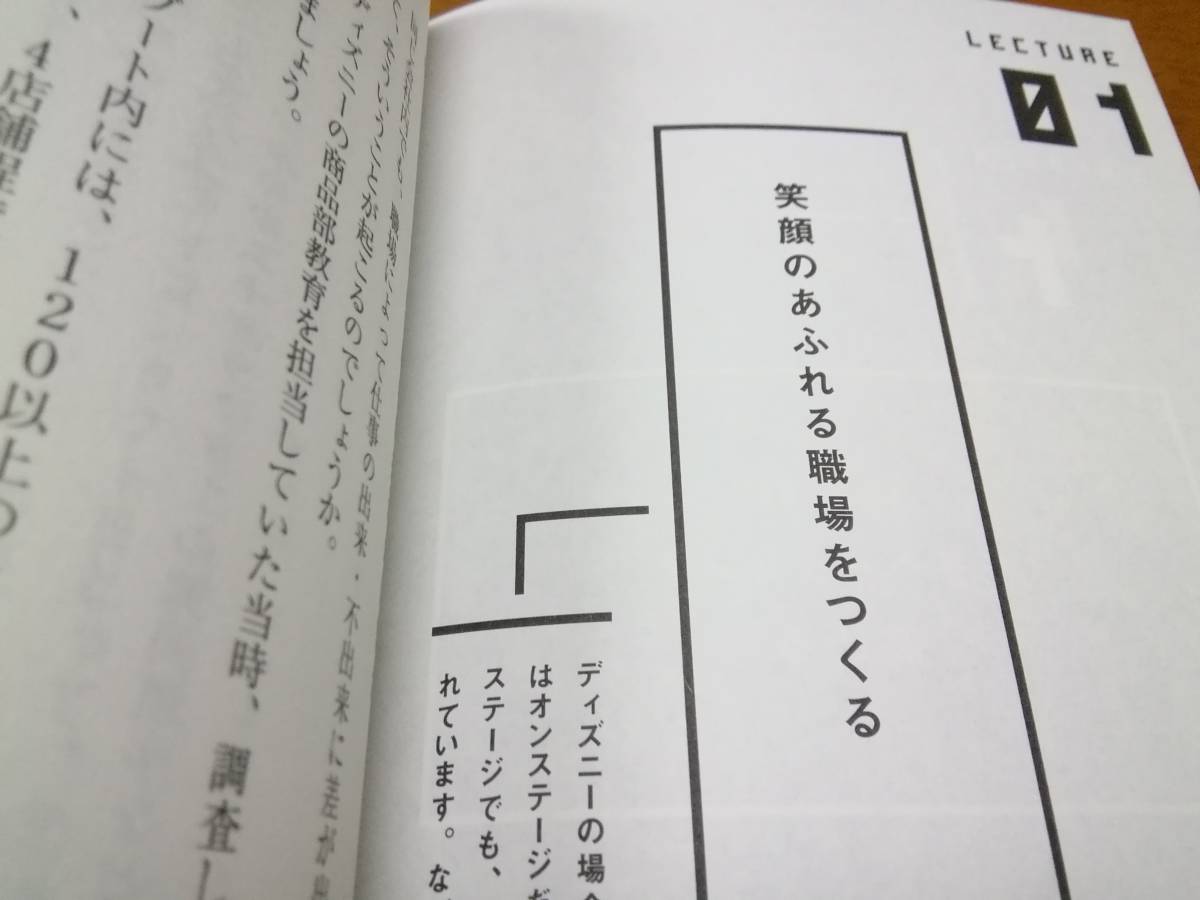 LECTURE
01
笑顔のあふれる職場をつくる
ディズニーの場合
はオンステージだ
ステージでも、
れています。な
職場によって仕事の出来・不出来に差が
そういうことが起こるのでしょうか。
ディズニーの商品部教育を担当していた当時、調査し
ましょう。
ート内には、120以上の
、4店舗程